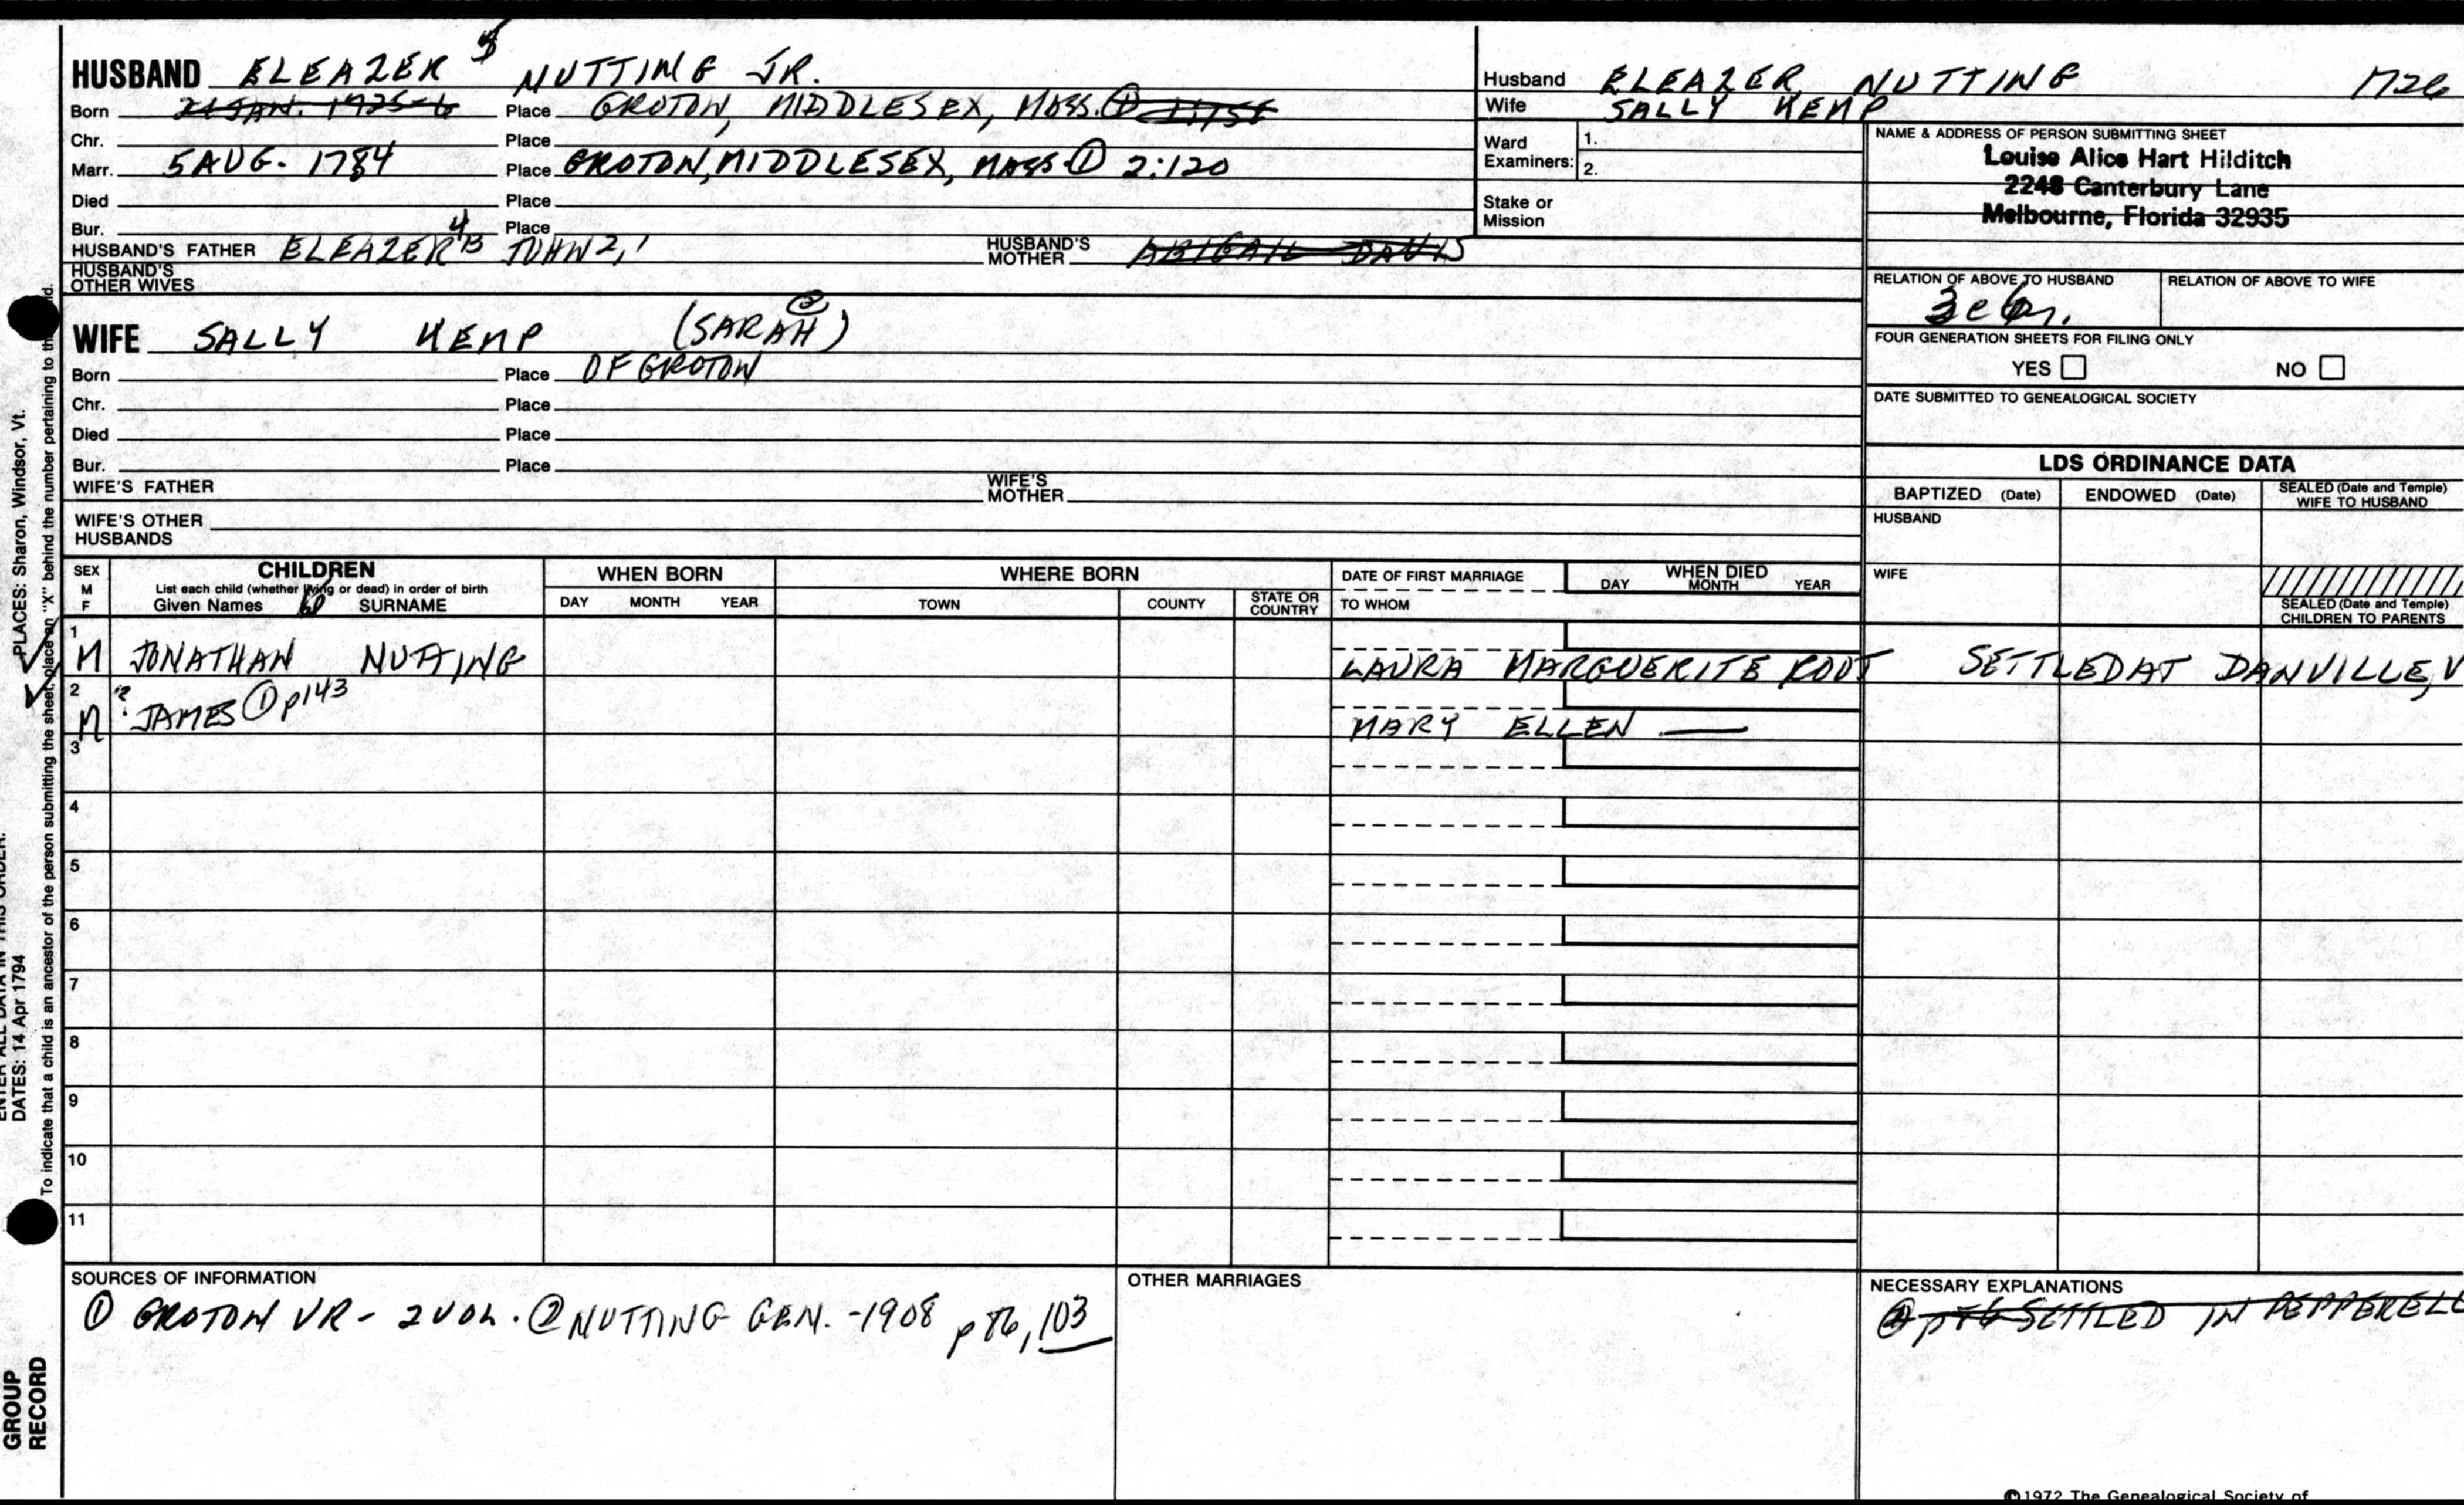 HUSBAND ELEAZER 5 NUTTING JR.
Born 21 JAN. 1725-6 Place GROTON, MIDDLESEX, MASS. ①
Chr. Place
Marr. 5 AUG. 1784 Place GROTON, MIDDLESEX, MASS ① 2:120
Died Place
Bur. Place
HUSBAND'S FATHER ELEAZER 4 3 JOHN 2,1 HUSBAND'S MOTHER ABIGAIL DAVIS
HUSBAND'S OTHER WIVES
WIFE SALLY KEMP (SARAH) ②
Born Place OF GROTON
Chr. Place
Died Place
Bur. Place
WIFE'S FATHER WIFE'S MOTHER
WIFE'S OTHER HUSBANDS
Husband ELEAZER NUTTING 1726
Wife SALLY KEMP
Ward Examiners: 1.
2.
Stake or Mission
NAME & ADDRESS OF PERSON SUBMITTING SHEET
Louise Alice Hart Hilditch
2248 Canterbury Lane
Melbourne, Florida 32935
RELATION OF ABOVE TO HUSBAND RELATION OF ABOVE TO WIFE
FOUR GENERATION SHEETS FOR FILING ONLY
YES NO
DATE SUBMITTED TO GENEALOGICAL SOCIETY
LDS ORDINANCE DATA
BAPTIZED (Date) ENDOWED (Date) SEALED (Date and Temple) WIFE TO HUSBAND
HUSBAND
WIFE
SEALED (Date and Temple) CHILDREN TO PARENTS
SEX M F CHILDREN WHEN BORN WHERE BORN DATE OF FIRST MARRIAGE WHEN DIED
List each child (whether living or dead) in order of birth
Given Names SURNAME DAY MONTH YEAR TOWN COUNTY STATE OR COUNTRY TO WHOM DAY MONTH YEAR
1 M JONATHAN NUTTING LAURA MARGUERITE ROOT SETTLED AT DANVILLE, V
2 M ? JAMES ① p143 MARY ELLEN —
3
4
5
6
7
8
9
10
11
SOURCES OF INFORMATION
① GROTON VR - 2 VOL. ② NUTTING GEN. - 1908 p 86, 103
OTHER MARRIAGES
NECESSARY EXPLANATIONS
② p 86 SETTLED IN PEPPERELL
©1972 The Genealogical Society of
PLACES: Sharon, Windsor, Vt.
ENTER ALL DATA IN THIS ORDER:
DATES: 14 Apr 1794
To indicate that a child is an ancestor of the person submitting the sheet, place an "X" behind the number pertaining to that child.
GROUP
RECORD